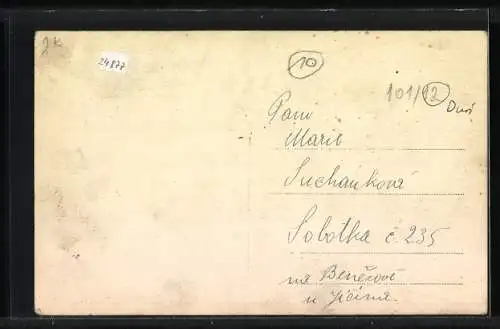 2K
24877
10
101/12
Paní
Marie
Suchánková
Sobotka č. 235
na Benešově
u Jičína